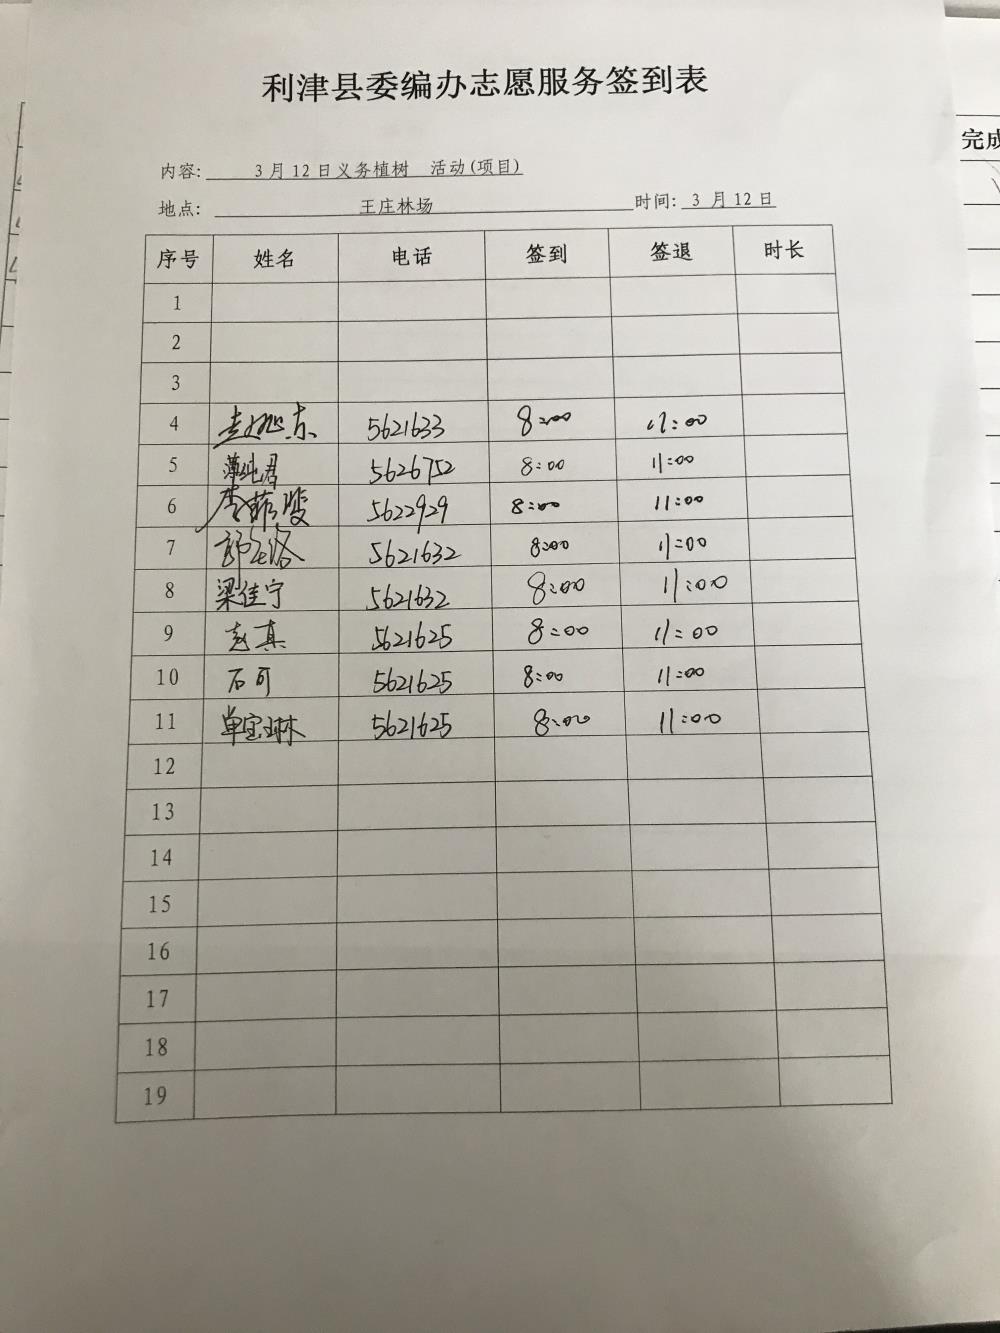 利津县委编办志愿服务签到表
内容: 3月12日义务植树 活动(项目)
地点: 王庄林场 时间: 3 月12日
序号 姓名 电话 签到 签退 时长
1
2
3
4 5621633 8:00 11:00
5 5626752 8:00 11:00
6 5622929 8:00 11:00
7 5621632 8:00 11:00
8 梁佳宁 5621632 8:00 11:00
9 赵真 5621625 8:00 11:00
10 石可 5621625 8:00 11:00
11 单宝琳 5621625 8:00 11:00
12
13
14
15
16
17
18
19
完成